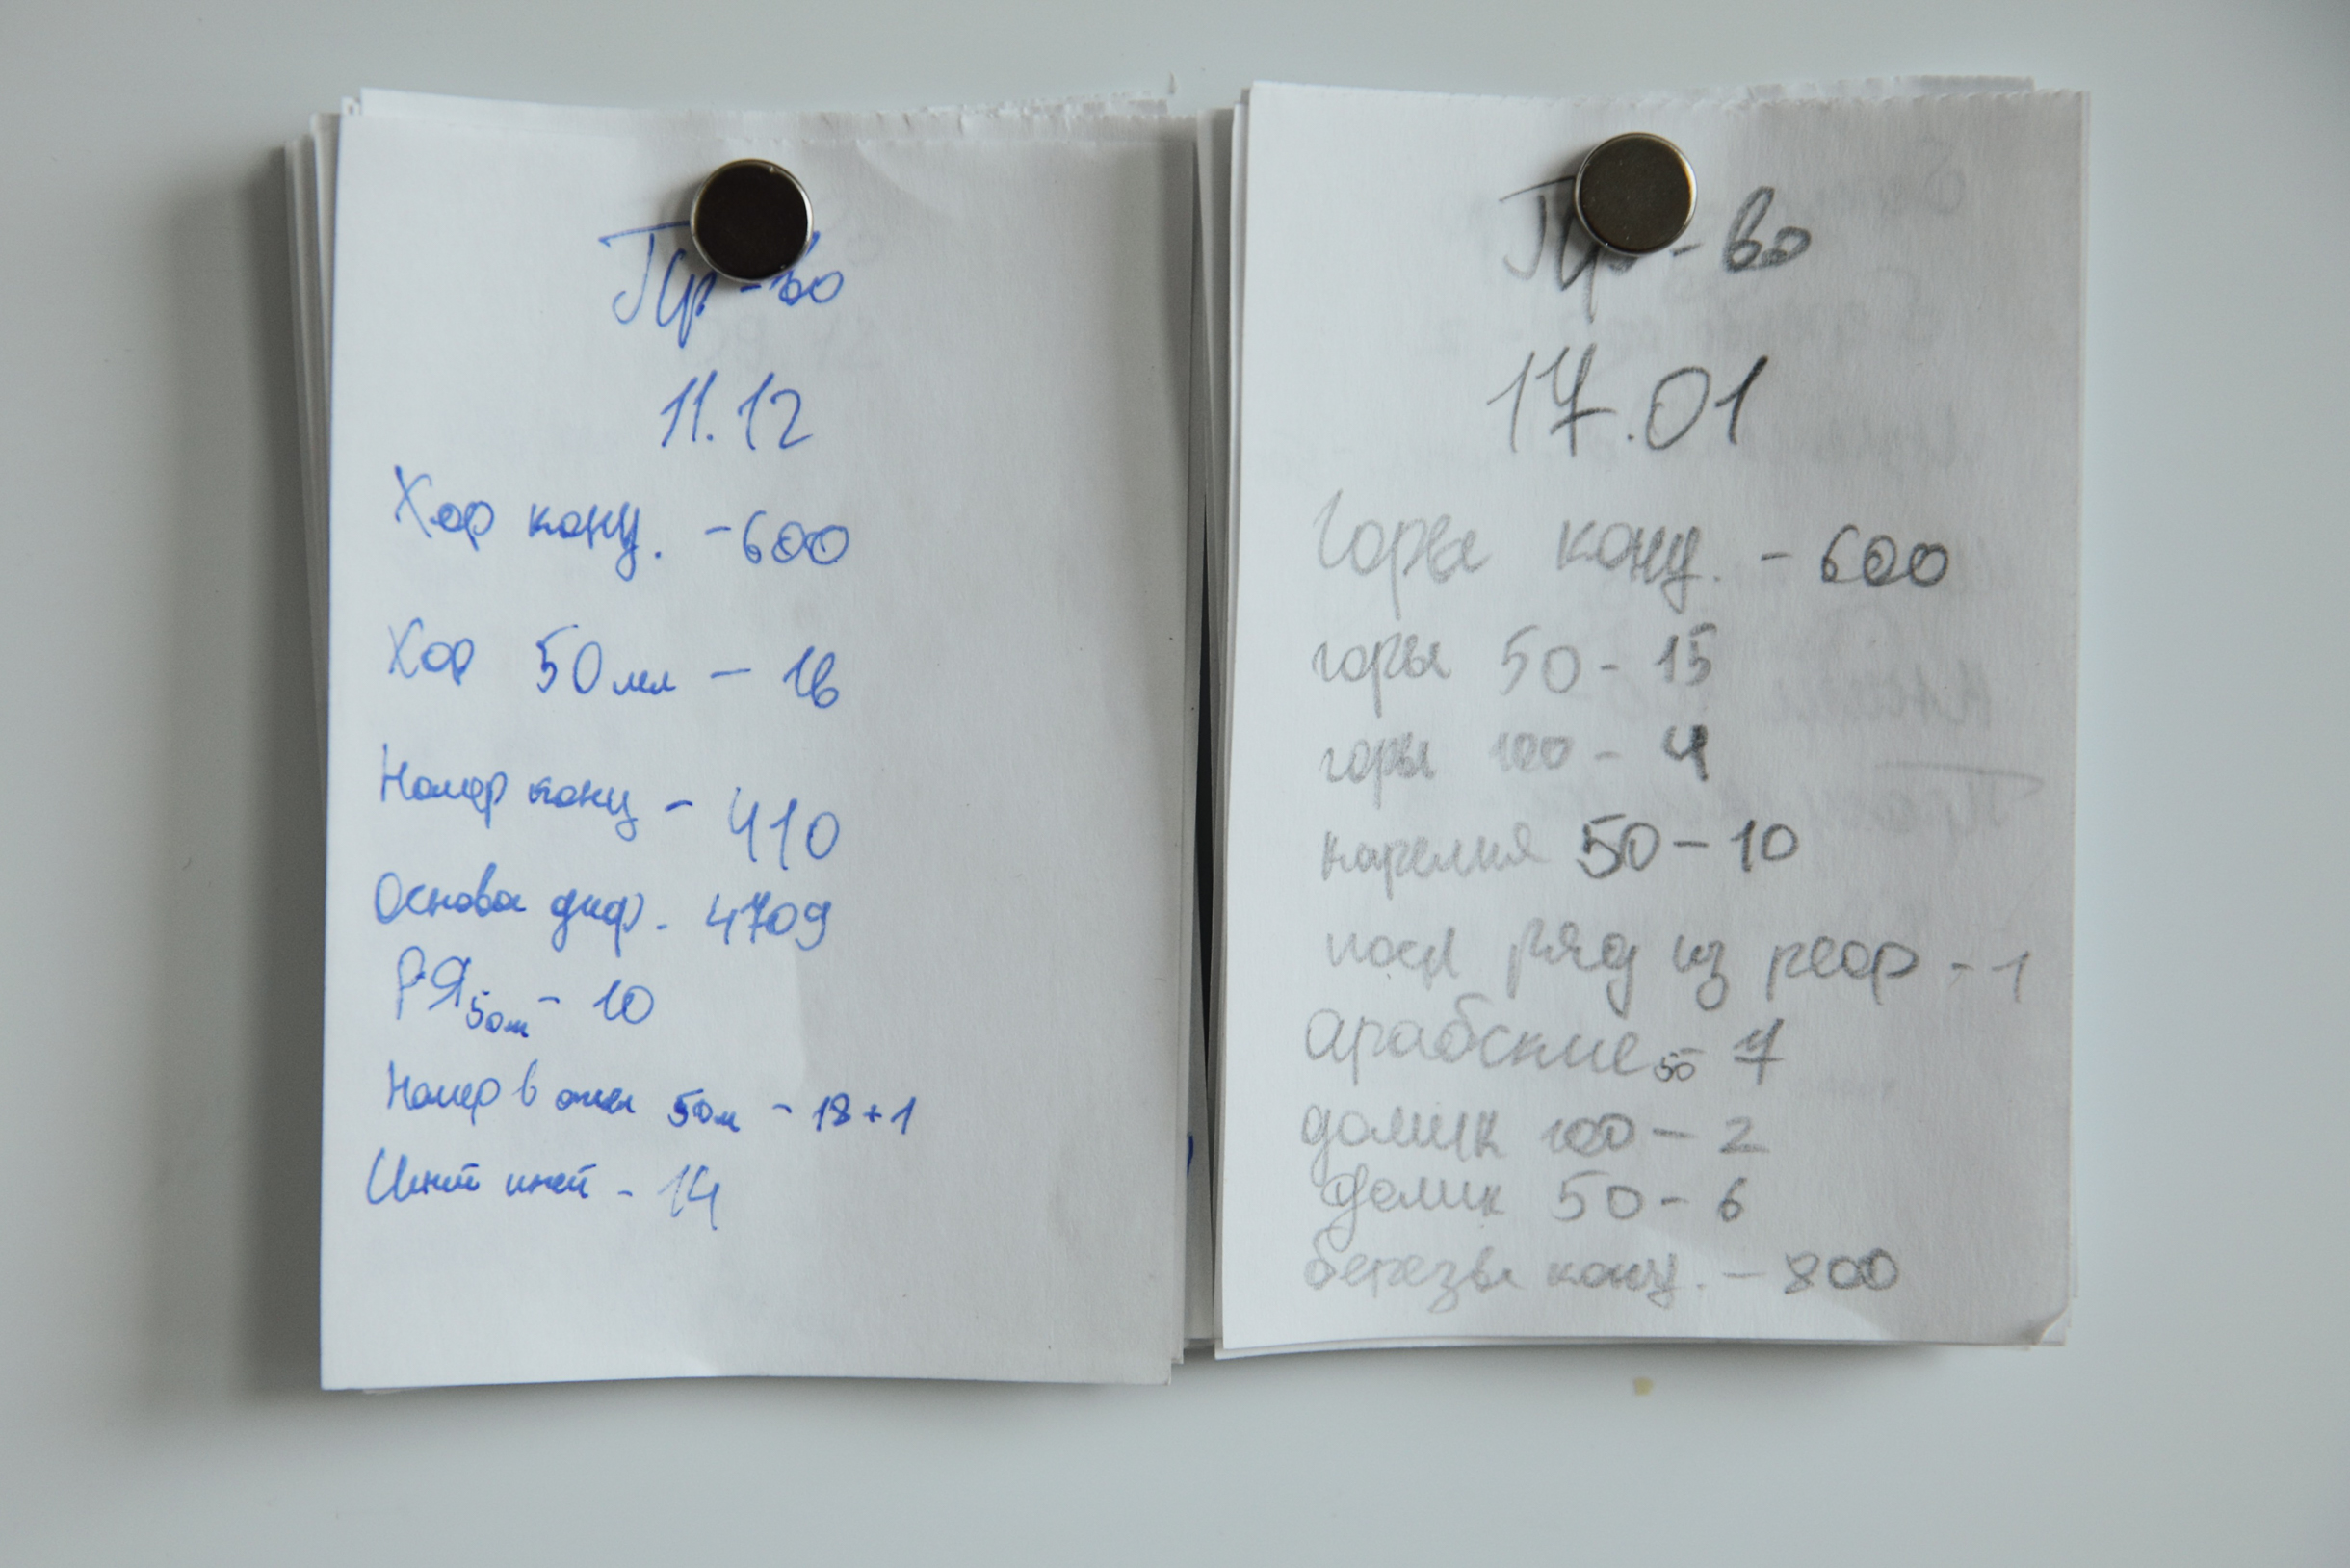 Пр-во
11.12
Хор конц. - 600
Хор 50мл - 16
Номер конц - 410
Основа диф. 4709
РЯ 50мл - 10
Номер в отеле 50мл - 18+1
Иней - 14
Пр-во
17.01
Горы конц. - 600
горы 50 - 15
горы 100 - 4
карелия 50 - 10
посл ряд из реор - 1
арабские 50 - 7
домик 100 - 2
домик 50 - 6
березы конц. - 800